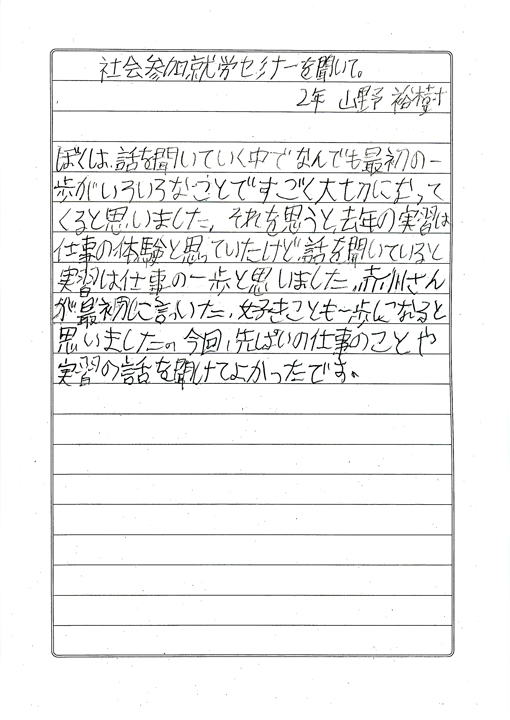 社会参加就労セミナーを聞いて。
2年 山野 裕樹
ぼくは、話を聞いていく中でなんでも最初の一
歩がいろいろなことですごく大切になって
くると思いました。それを思うと、去年の実習は
仕事の体験と思っていたけど話を聞いていると
実習は仕事の一歩と思いました。赤川さん
が最初に言いた、好きことも一歩になると
思いました。今回、先ぱいの仕事のことや
実習の話を聞けてよかったです。